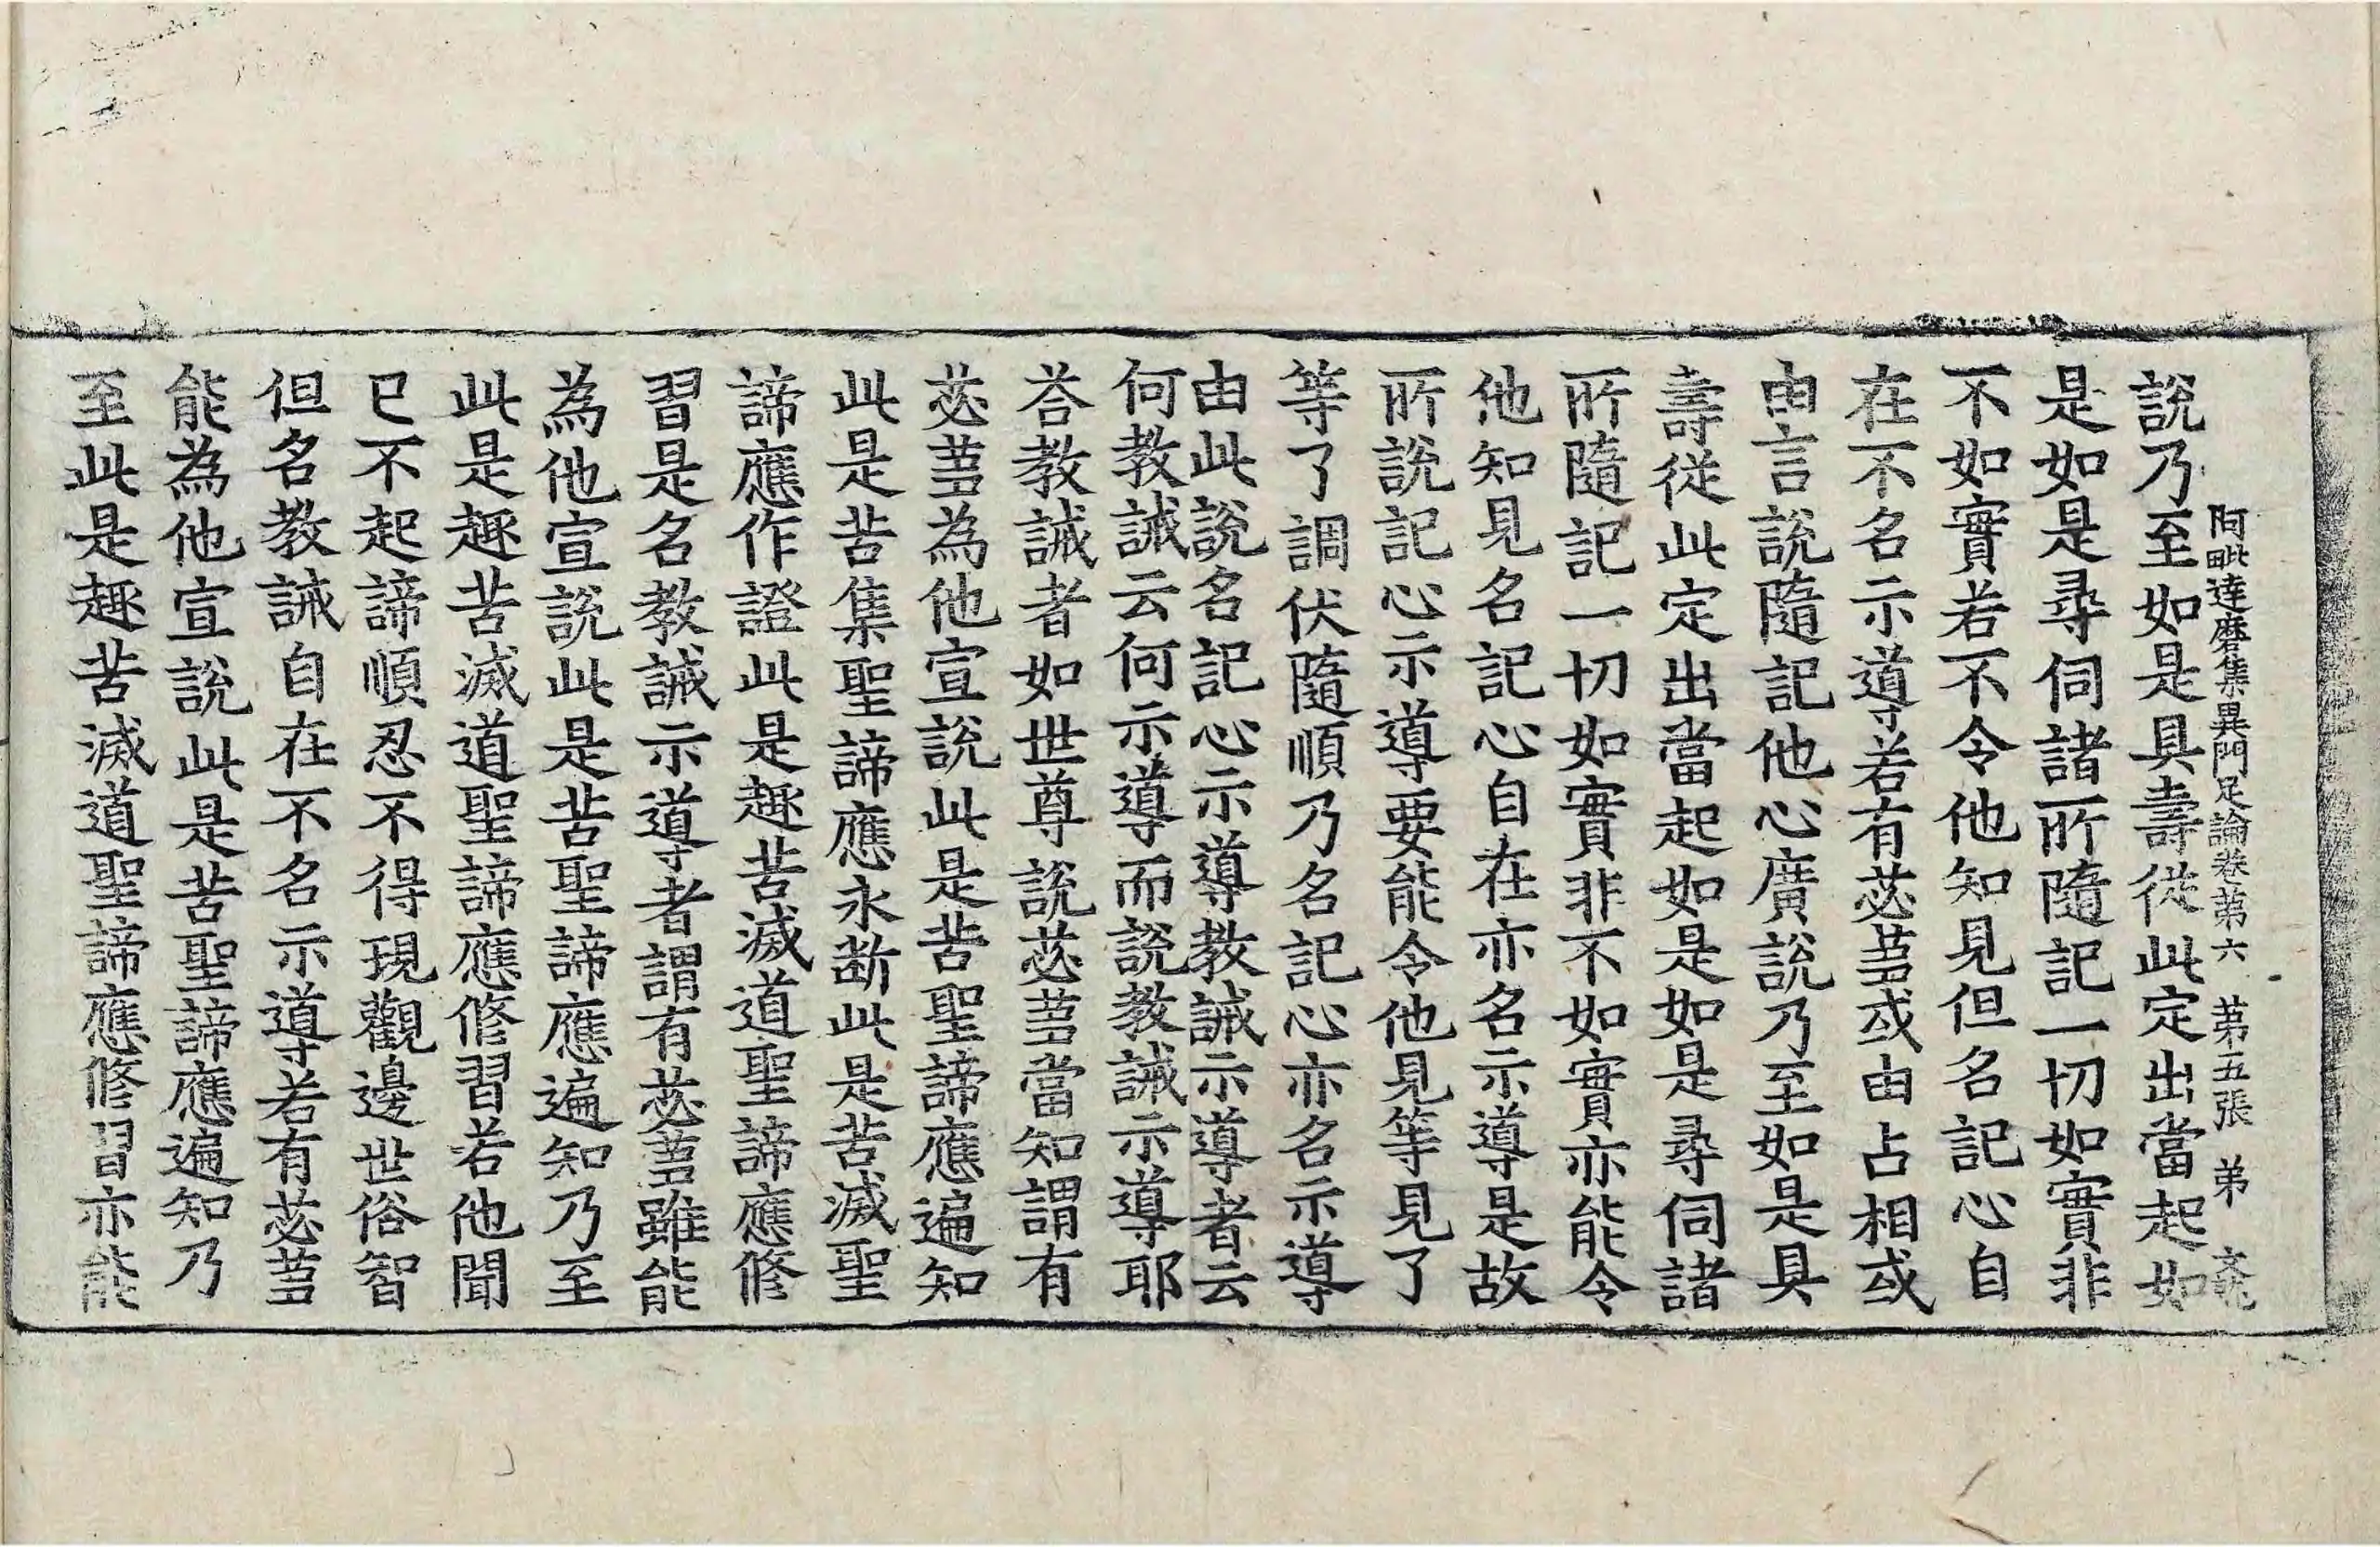 阿毗達磨集異門足論卷第六　第五張　弟
說乃至如是具壽從此定出當起如
是如是尋伺諸所隨記一切如實非
不如實若不令他知見但名記心自
在不名示導若有苾蒭或由占相或
由言說隨記他心廣說乃至如是具
壽從此定出當起如是如是尋伺諸
所隨記一切如實非不如實亦能令
他知見名記心自在亦名示導是故
所說記心示導要能令他見等見了
等了調伏隨順乃名記心亦名示導
由此說名記心示導教誡示導者云
何教誡云何示導而說教誡示導耶
荅教誡者如世尊說苾蒭當知謂有
苾蒭為他宣說此是苦聖諦應遍知
此是苦集聖諦應永斷此是苦滅聖
諦應作證此是趣苦滅道聖諦應修
習是名教誡示導者謂有苾蒭雖能
為他宣說此是苦聖諦應遍知乃至
此是趣苦滅道聖諦應修習若他聞
已不起諦順忍不得現觀邊世俗智
但名教誡自在不名示導若有苾蒭
能為他宣說此是苦聖諦應遍知乃
至此是趣苦滅道聖諦應修習亦能